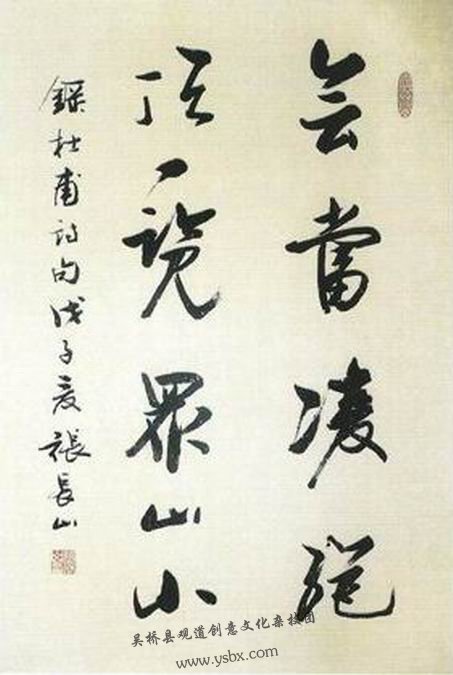 会當凌绝
顶一览眾山小
録杜甫诗句戊子夏張長山
吴桥县观道创意文化杂技团
www.ysbx.com